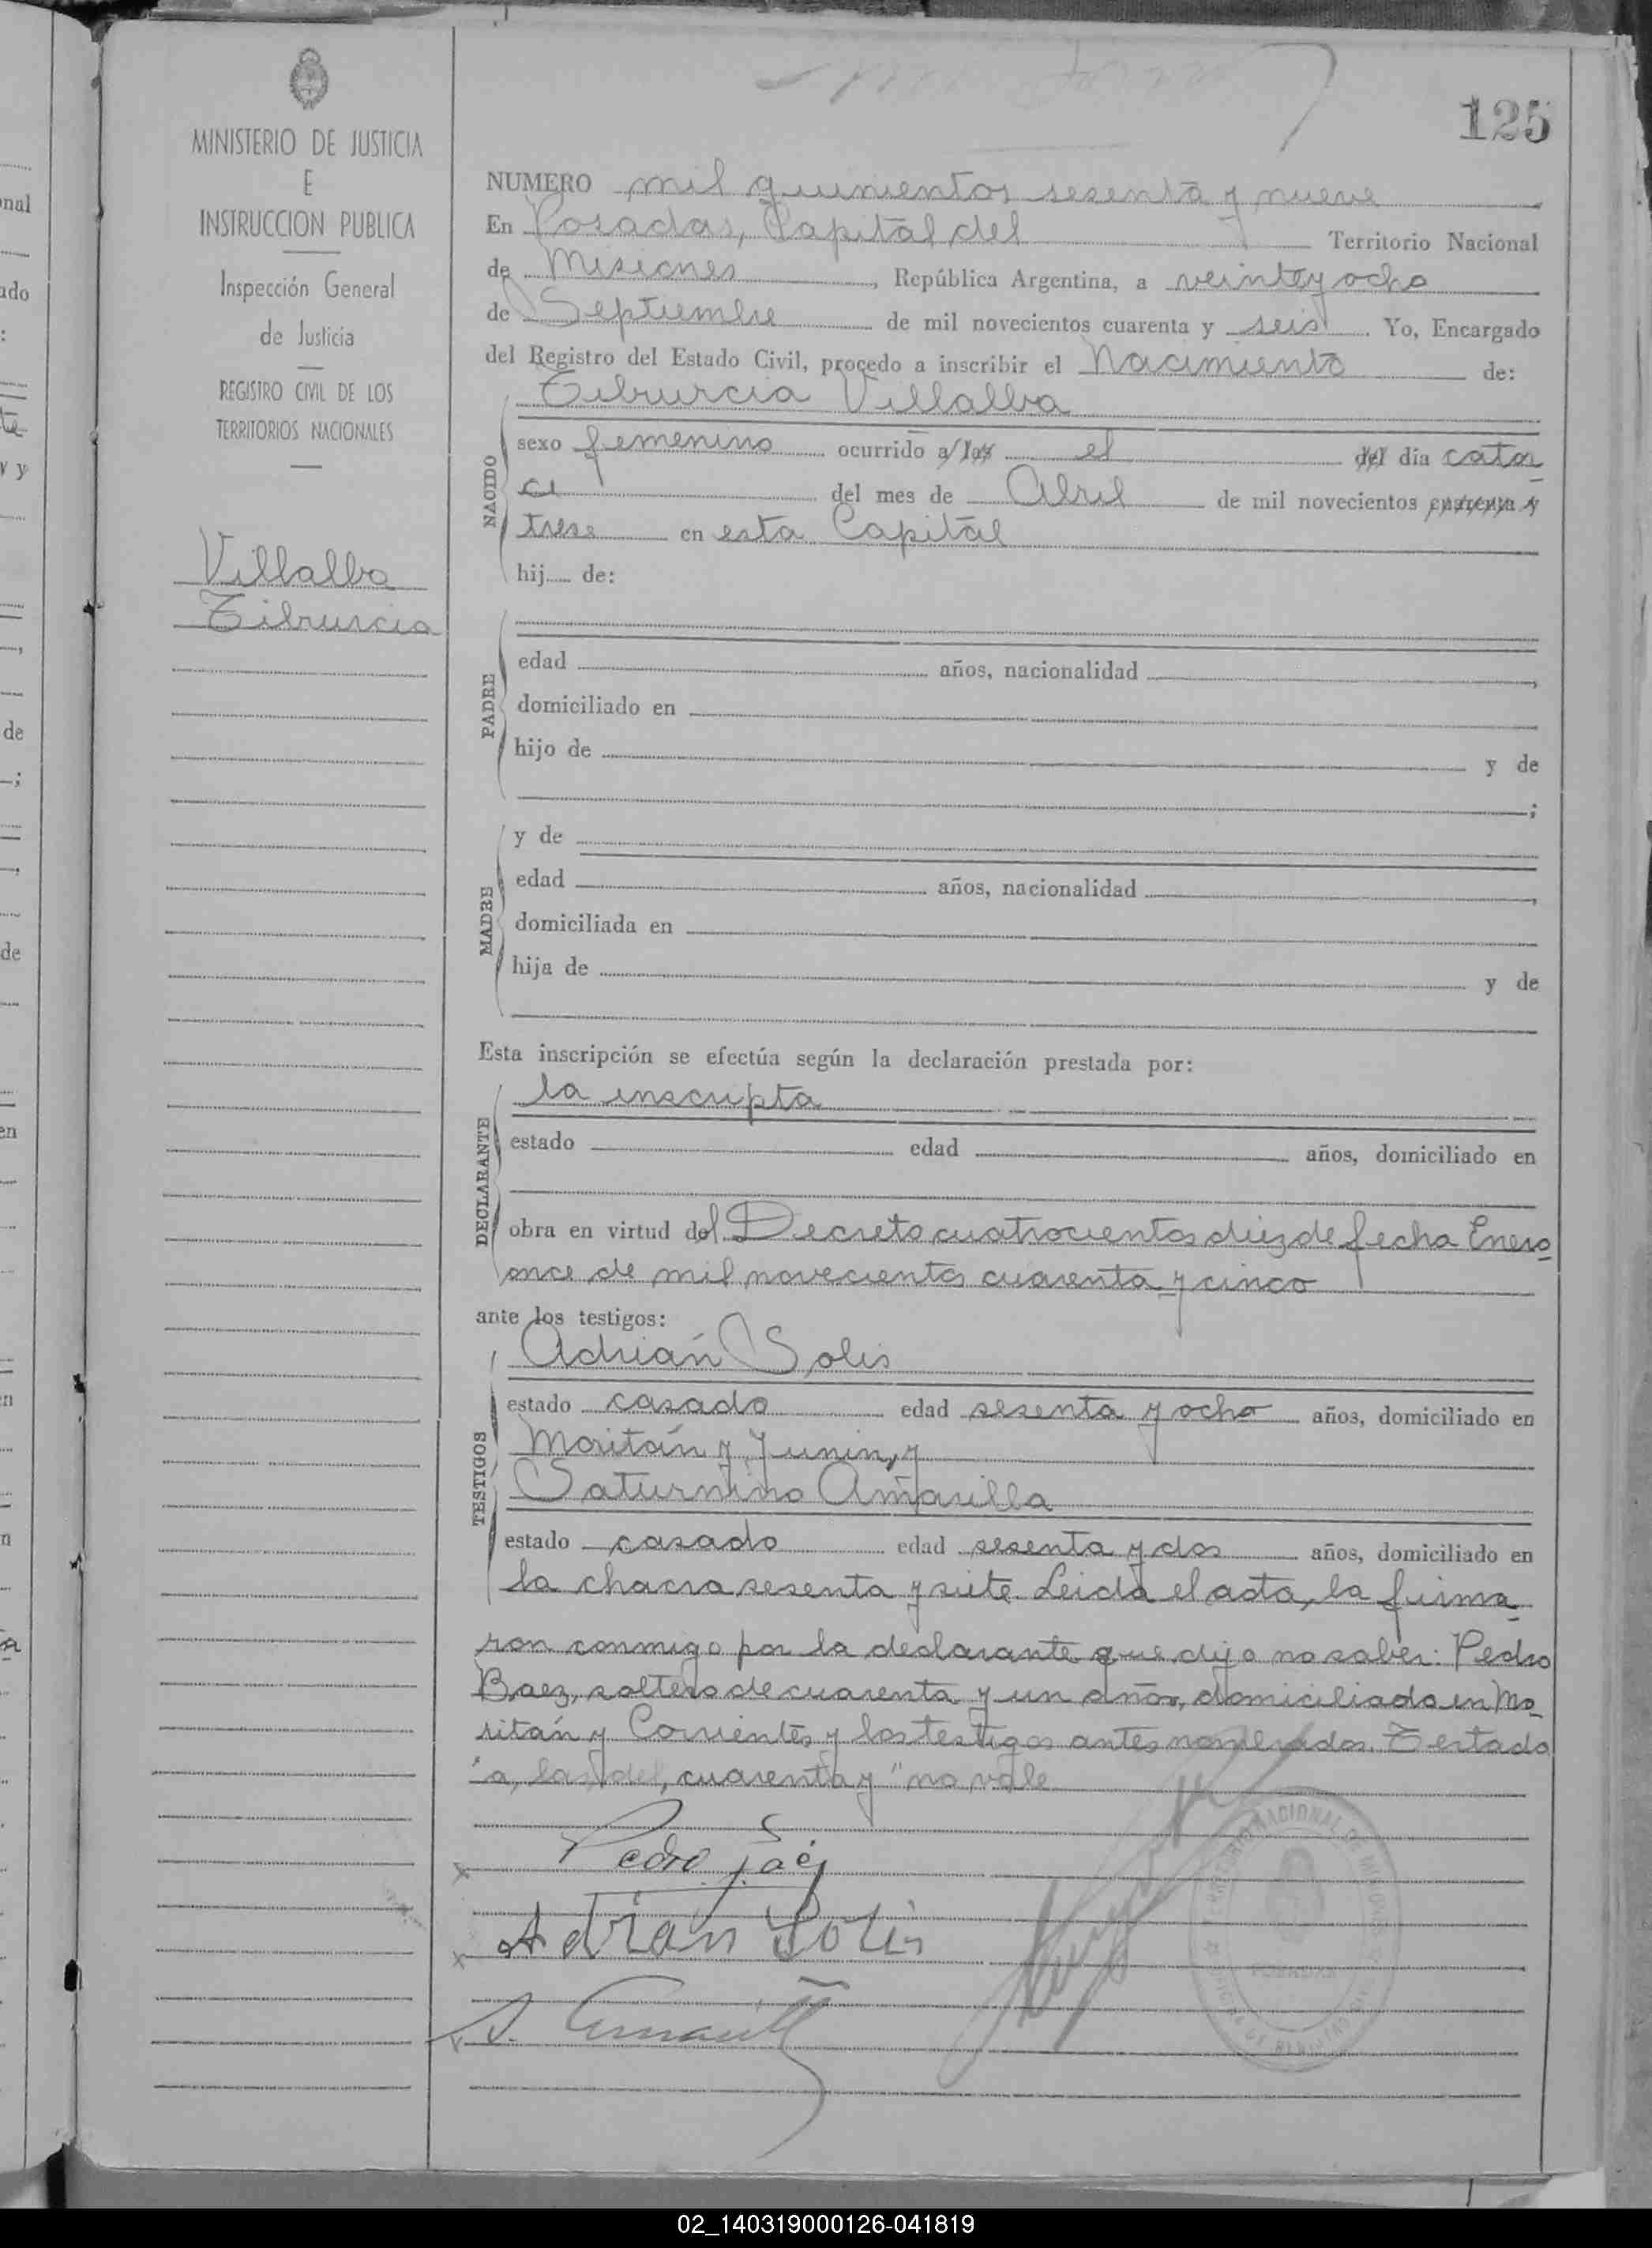 125
MINISTERIO DE JUSTICIA
E
INSTRUCCION PUBLICA
Inspección General
de Justicia
REGISTRO CIVIL DE LOS
TERRITORIOS NACIONALES
Villalba
Tiburcia
NUMERO mil quinientos sesenta y nueve
En Posadas, Capital del Territorio Nacional
de Misiones, República Argentina, a veinte y ocho
de Septiembre de mil novecientos cuarenta y seis. Yo, Encargado
del Registro del Estado Civil, procedo a inscribir el Nacimiento de:
Tiburcia Villalba
NACIDO
sexo femenino ocurrido a las el del día cator
ce del mes de Abril de mil novecientos cuarenta y
trece en esta Capital
hij de:
PADRE
edad años, nacionalidad ,
domiciliado en
hijo de y de
;
MADRE
y de
edad años, nacionalidad ,
domiciliada en
hija de y de
Esta inscripción se efectúa según la declaración prestada por:
DECLARANTE
la inscripta
estado edad años, domiciliado en
obra en virtud del Decreto cuatrocientos diez de fecha Enero
once de mil novecientos cuarenta y cinco
ante los testigos:
TESTIGOS
Adrián Solis
estado casado edad sesenta y ocho años, domiciliado en
Moritán y Junin, y
Saturnino Amarilla
estado casado edad sesenta y dos años, domiciliado en
la chacra sesenta y siete. Leida el acta, la firma
ron conmigo por la declarante que dijo no saber: Pedro
Baez, soltero de cuarenta y un años, domiciliado en Mo
ritán y Corrientes y los testigos antes nombrados. Testado
"a, las, del, cuarenta y" no vale
Pedro Báez
Adrian Solis
S. Amarilla
POSADAS
02_140319000126-041819